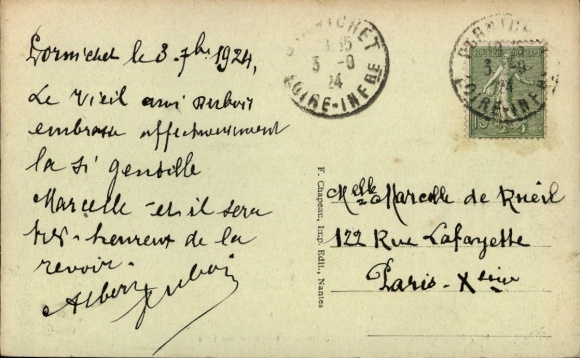 Pornichet le 3. 7bre 1924,
Le Vieil ami Dubois
embrasse affectueusement
la si gentille
Marcelle et il sera
très heureux de la
revoir.
Albert Dubois
PORNICHET
3 -9
24
LOIRE-INFRE
PORNICHET
3 -9
24
LOIRE-INFRE
15
F. Chapeau, Imp. Edit., Nantes
Melle Marcelle de Rueil
122 Rue Lafayette
Paris - Xème